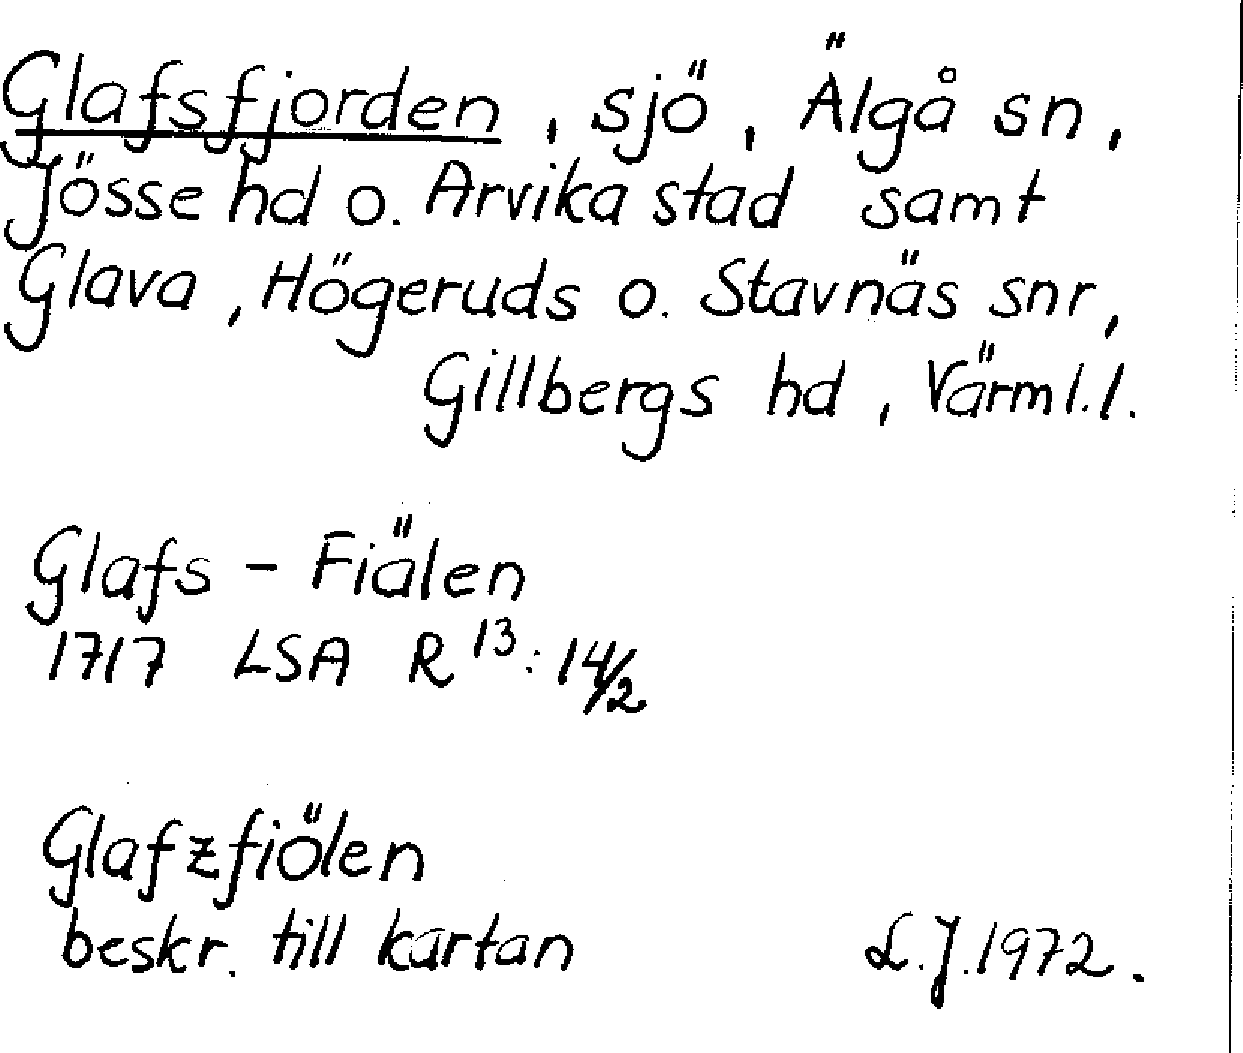 Glafsfjorden, sjö, Älgå sn,
Jösse hd o. Arvika stad samt
Glava, Högeruds o. Stavnäs snr,
Gillbergs hd, Värml.l.
Glafs-Fiälen
1717 LSA R13:14/2
Glafzfiölen
beskr. till kartan
L.J.1972.